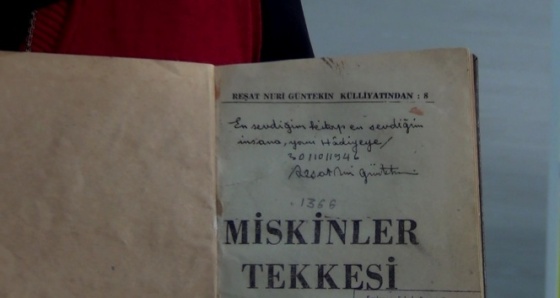 REŞAT NURİ GÜNTEKİN KÜLLİYATINDAN : 8
En sevdiğim kitap en sevdiğim
insana, yani Hâdiyeye
30/10/1946
Reşat Nuri Güntekin
1366
MİSKİNLER
TEKKESİ